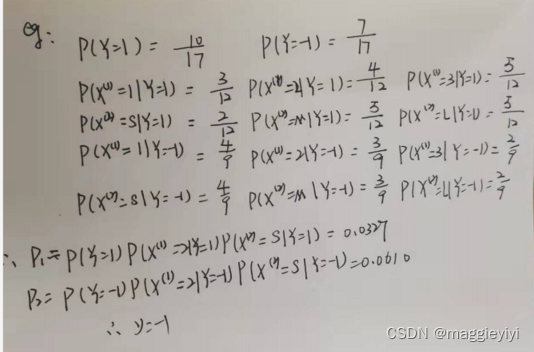 eg: P(Y=1) = 10/17 P(Y=-1) = 7/17
P(X⁽¹⁾=1|Y=1) = 3/12 P(X⁽¹⁾=2|Y=1) = 4/12 P(X⁽¹⁾=3|Y=1) = 5/12
P(X⁽²⁾=S|Y=1) = 2/12 P(X⁽²⁾=M|Y=1) = 5/12 P(X⁽²⁾=L|Y=1) = 5/12
P(X⁽¹⁾=1|Y=-1) = 4/9 P(X⁽¹⁾=2|Y=-1) = 3/9 P(X⁽¹⁾=3|Y=-1) = 2/9
P(X⁽²⁾=S|Y=-1) = 4/9 P(X⁽²⁾=M|Y=-1) = 3/9 P(X⁽²⁾=L|Y=-1) = 2/9
∴ P₁ = P(Y=1)P(X⁽¹⁾=2|Y=1)P(X⁽²⁾=S|Y=1) = 0.0327
P₂ = P(Y=-1)P(X⁽¹⁾=2|Y=-1)P(X⁽²⁾=S|Y=-1) = 0.0610
∴ y=-1
CSDN @maggieyiyi